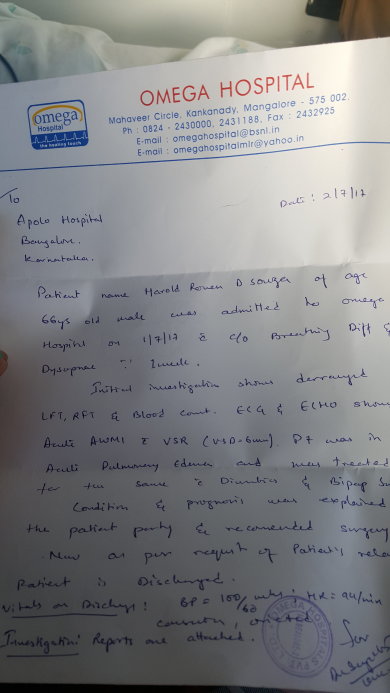 omega
Hospital
the healing touch
OMEGA HOSPITAL
Mahaveer Circle, Kankanady, Mangalore - 575 002.
Ph : 0824 - 2430000, 2431188, Fax : 2432925
E-mail : omegahospital@bsnl.in
E-mail : omegahospitalmlr@yahoo.in
To
Date : 2/7/17
Apolo Hospital
Bangalore.
Karnataka.
Patient name Harold Rowen D souza of age
66ys old male was admitted to omega
Hospital on 1/7/17 c̄ c/o Breathing Diff &
Dysopnae 1 week.
Initial investigation shows derranged
LFT, RFT & Blood Count. ECG & ECHO show
Acute AWMI c̄ VSR (VSD-6mm). Pt was in
Acute Pulmonary Edema and was treated
for the same c̄ Diuretics & Bipap
Condition & prognosis was explained
the patient party & recomended surgery
Now as per request of Patient's rela
Patient is Discharged.
Vitals on Discharge : BP = 100/60 ; HR = 94/min
conscious, oriented
Investigation Reports are attached.
for